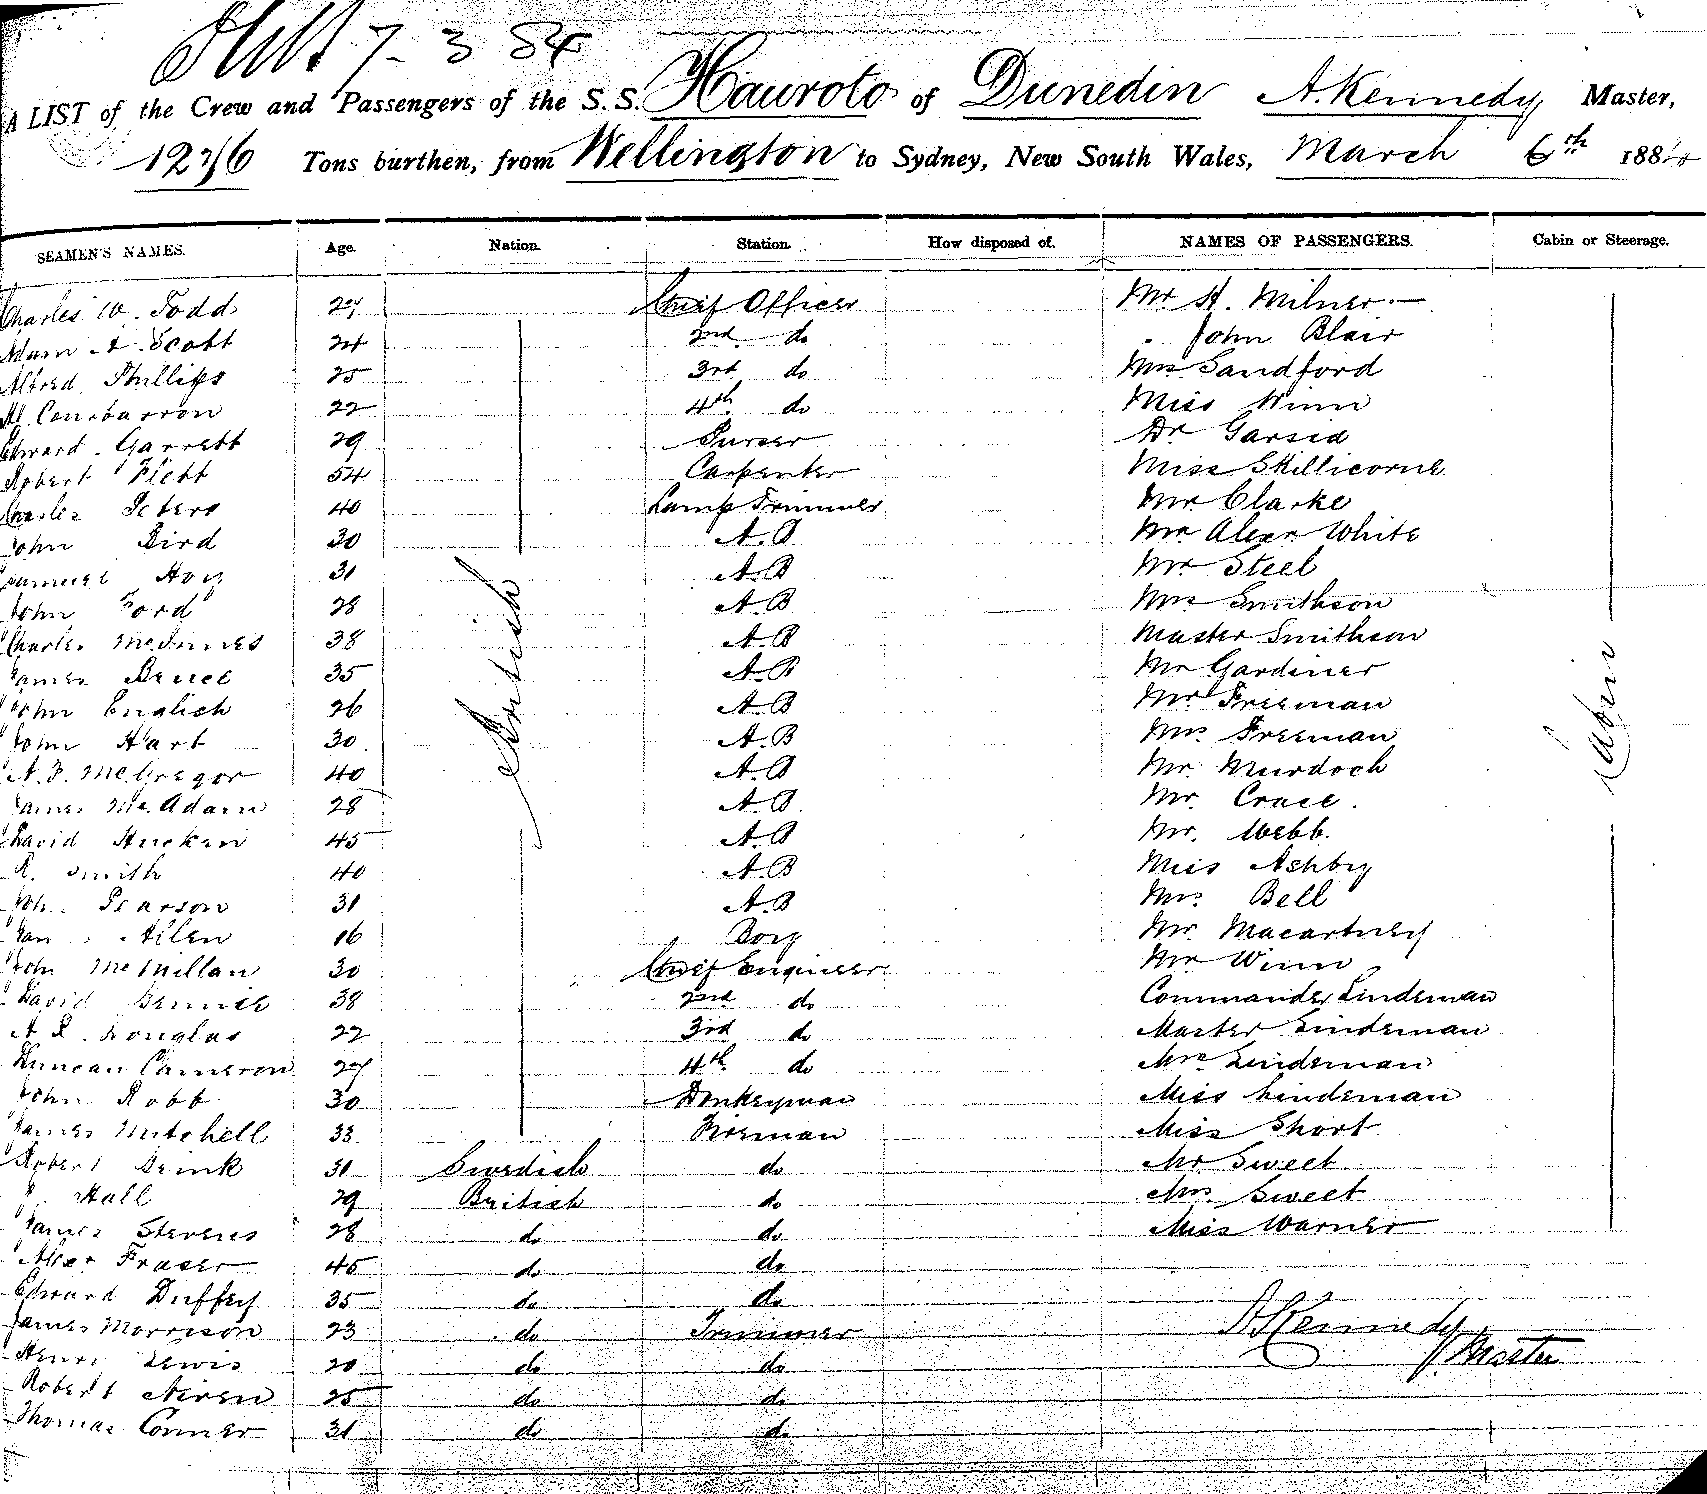 7 - 3 84
A LIST of the Crew and Passengers of the S. S. Hauroto of Dunedin A. Kennedy Master,
1276 Tons burthen, from Wellington to Sydney, New South Wales, March 6th 1884
SEAMEN'S NAMES. Age. Nation. Station. How disposed of. NAMES OF PASSENGERS. Cabin or Steerage.
Charles W. Todd 27 Chief Officer Mr H. Milner
Adam A. Scott 24 2nd do John Blair
Alfred Phillips 25 3rd do Mrs Sandford
22 4th do Miss Winn
Edward Garrett 29 Purser Dr Garsed
Robert Flett 54 Carpenter Miss Skillicorne
Charles Peters 40 Lamp Trimmer Mr Clarke
John Bird 30 A.B Mr Alexr White
Samuel Hoy 31 A.B Mr Steel
John Ford 28 A.B Mrs Smithson
Charles McInnes 38 A.B Master Smithson
James Bruce 35 A.B Mr Gardiner
John English 26 A.B Mr Freeman
John Hart 30 A.B Mrs Freeman
British
Cabin
A. F. McGregor 40 A.B Mr Murdoch
James McAdam 28 A.B Mr Crace.
David Hucken 45 A.B Mr. Webb.
R. Smith 40 A.B Miss Ashby
John Pearson 31 A.B Mrs Bell
Allen 16 Boy Mr Macartney
John McMillan 30 Chief Engineer Mr Winn
David Bennie 38 2nd do Commander Lindeman
A R. Douglas 22 3rd do Master Lindeman
Duncan Cameron 27 4th do Mrs Lindeman
John Robb 30 Donkeyman Miss Lindeman
James Mitchell 33 Fireman Miss Short
Robert Brink 31 Swedish do Mr Sweet
Hall 29 British do Mrs Sweet
James Stevens 28 do do Miss Warner
Alex Fraser 45 do do
Edward Duffey 35 do do
James Morrison 23 do Trimmer A Kennedy
Henri Lewis 20 do do Master
Robert Niven 25 do do
Thomas Conner 31 do do